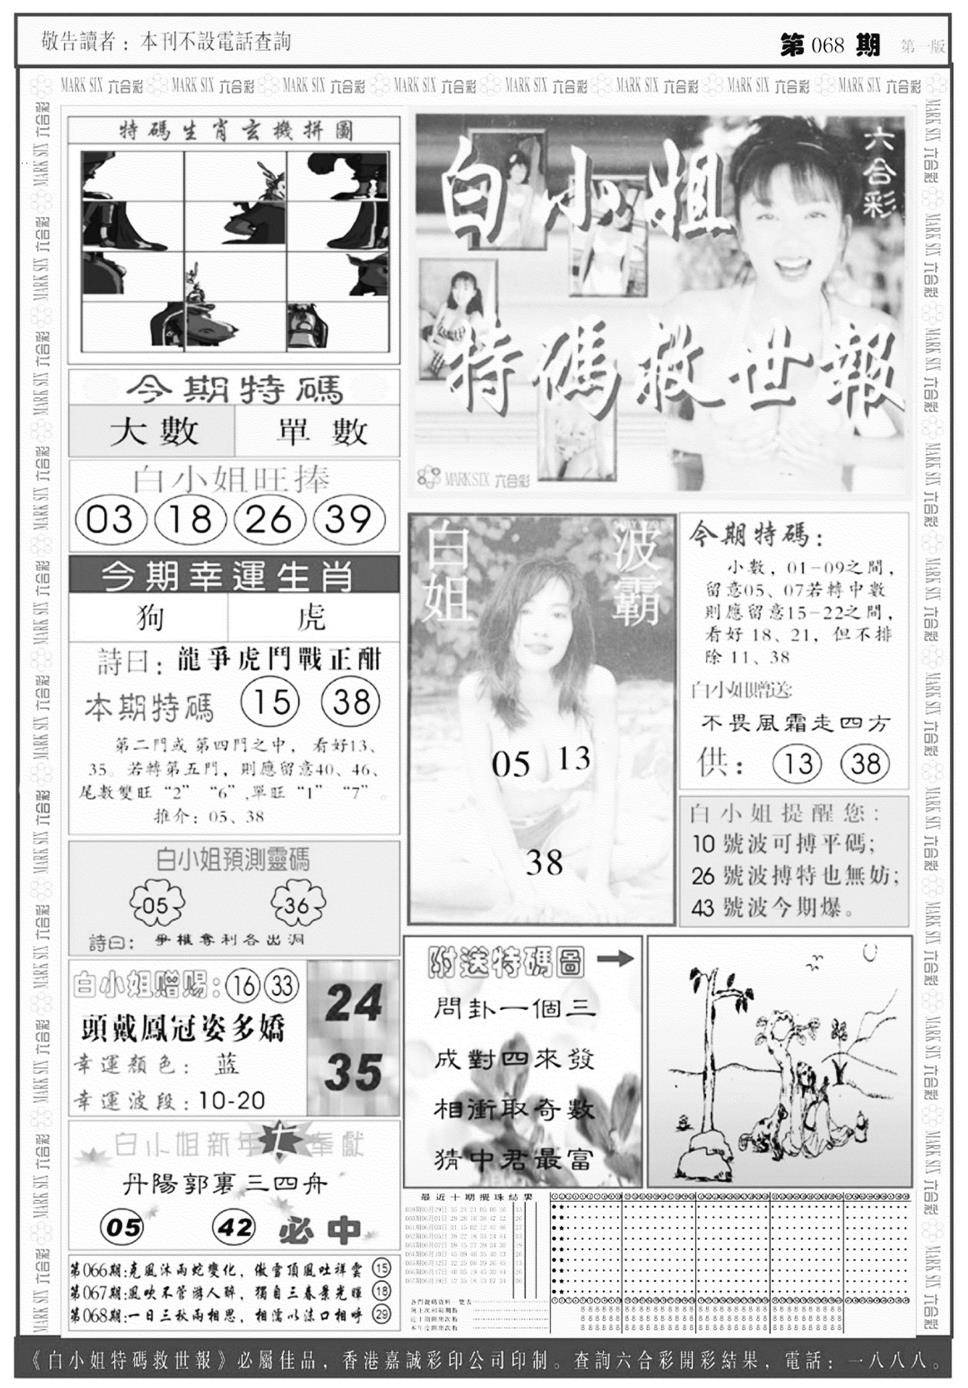 敬告讀者：本刊不設電話查詢
第068期 第一版
MARK SIX 六合彩 MARK SIX 六合彩 MARK SIX 六合彩 MARK SIX 六合彩 MARK SIX 六合彩 MARK SIX 六合彩 MARK SIX 六合彩 MARK SIX 六合彩
特碼生肖玄機拼圖
今期特碼
大數 單數
白小姐旺捧
03 18 26 39
今期幸運生肖
狗 虎
詩曰：龍爭虎鬥戰正酣
本期特碼 15 38
第二門或第四門之中，看好13、
35。若轉第五門，則應留意40、46、
尾數雙旺“2” “6”,單旺“1” “7”。
推介：05、38
白小姐預測靈碼
05 36
詩曰：爭權奪利各出洞
白小姐赠赐：16 33
頭戴鳳冠姿多嬌
幸運顏色：蓝
幸運波段：10-20
24
35
白小姐新年大奉獻
丹陽郭裏三四舟
05 42 必中
第066期:克風沐雨蛇變化，傲雪頂風吐祥雲 15
第067期:風吹不管游人醉，獨自三春景光輝 18
第068期:一日三秋兩相思，相濡以沫口相呼 29
六合彩
白小姐
特碼救世報
MARK SIX 六合彩
白姐 波霸
05 13
38
今期特碼：
小數，01-09之間，
留意05、07若轉中數
則應留意15-22之間，
看好18、21，但不排
除11、38
白小姐贈送
不畏風霜走四方
供：13 38
白小姐提醒您：
10號波可搏平碼；
26號波搏特也無妨；
43號波今期爆。
附送特碼圖
問卦一個三
成對四來發
相衝取奇數
猜中君最富
最近十期攪珠結果
《白小姐特碼救世報》必屬佳品，香港嘉誠彩印公司印制。查詢六合彩開彩結果，電話：一八八八。